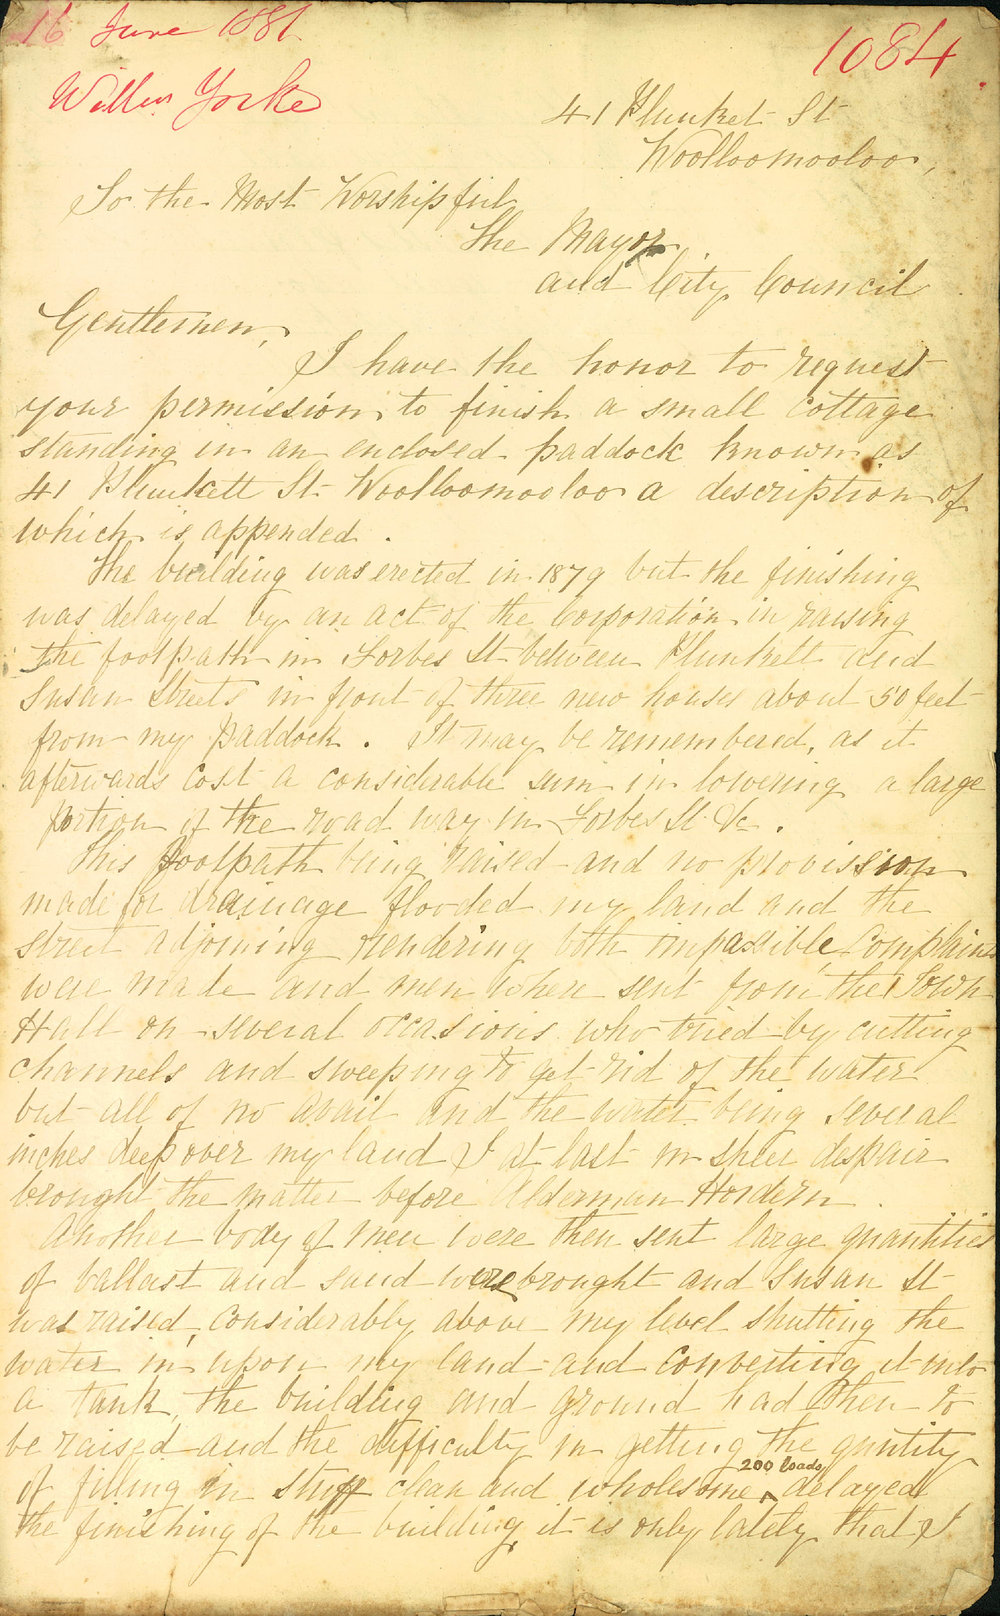 16 June 1881
1084
Willm Yorke
41 Plunket St
Woolloomooloo,
To the Most Worshipful
The Mayor
and City Council
Gentlemen,
I have the honor to request
your permission to finish a small cottage
standing in an enclosed paddock known as
41 Plunkett St Woolloomooloo a description of
which is appended.
The building was erected in 1879 but the finishing
was delayed by an act of the Corporation in raising
the footpath in Forbes St between Plunkett and
Susan Streets in front of three new houses about 50 feet
from my paddock. It may be remembered, as it
afterwards cost a considerable sum in lowering a large
portion of the road way in Forbes St &c.
This footpath being raised and no provission
made for drainage flooded my land and the
street adjoining rendering both impassible, Complaints
were made and men where sent from the Town
Hall on several occasions who tried by cutting
channels and sweeping to get rid of the water
but all of no avail and the water being several
inches deep over my land I at last in sheer despair
brought the matter before Alderman Hordern.
Another body of men were then sent large quantities
of ballast and sand were brought and Susan St
was raised considerably above my level shutting the
water in upon my land and converting it into
a tank, the building and ground had then to
be raised and the difficulty in getting the quntity
of filling in stuff clean and wholesome 200 loads delayed
the finishing of the building, it is only lately that I